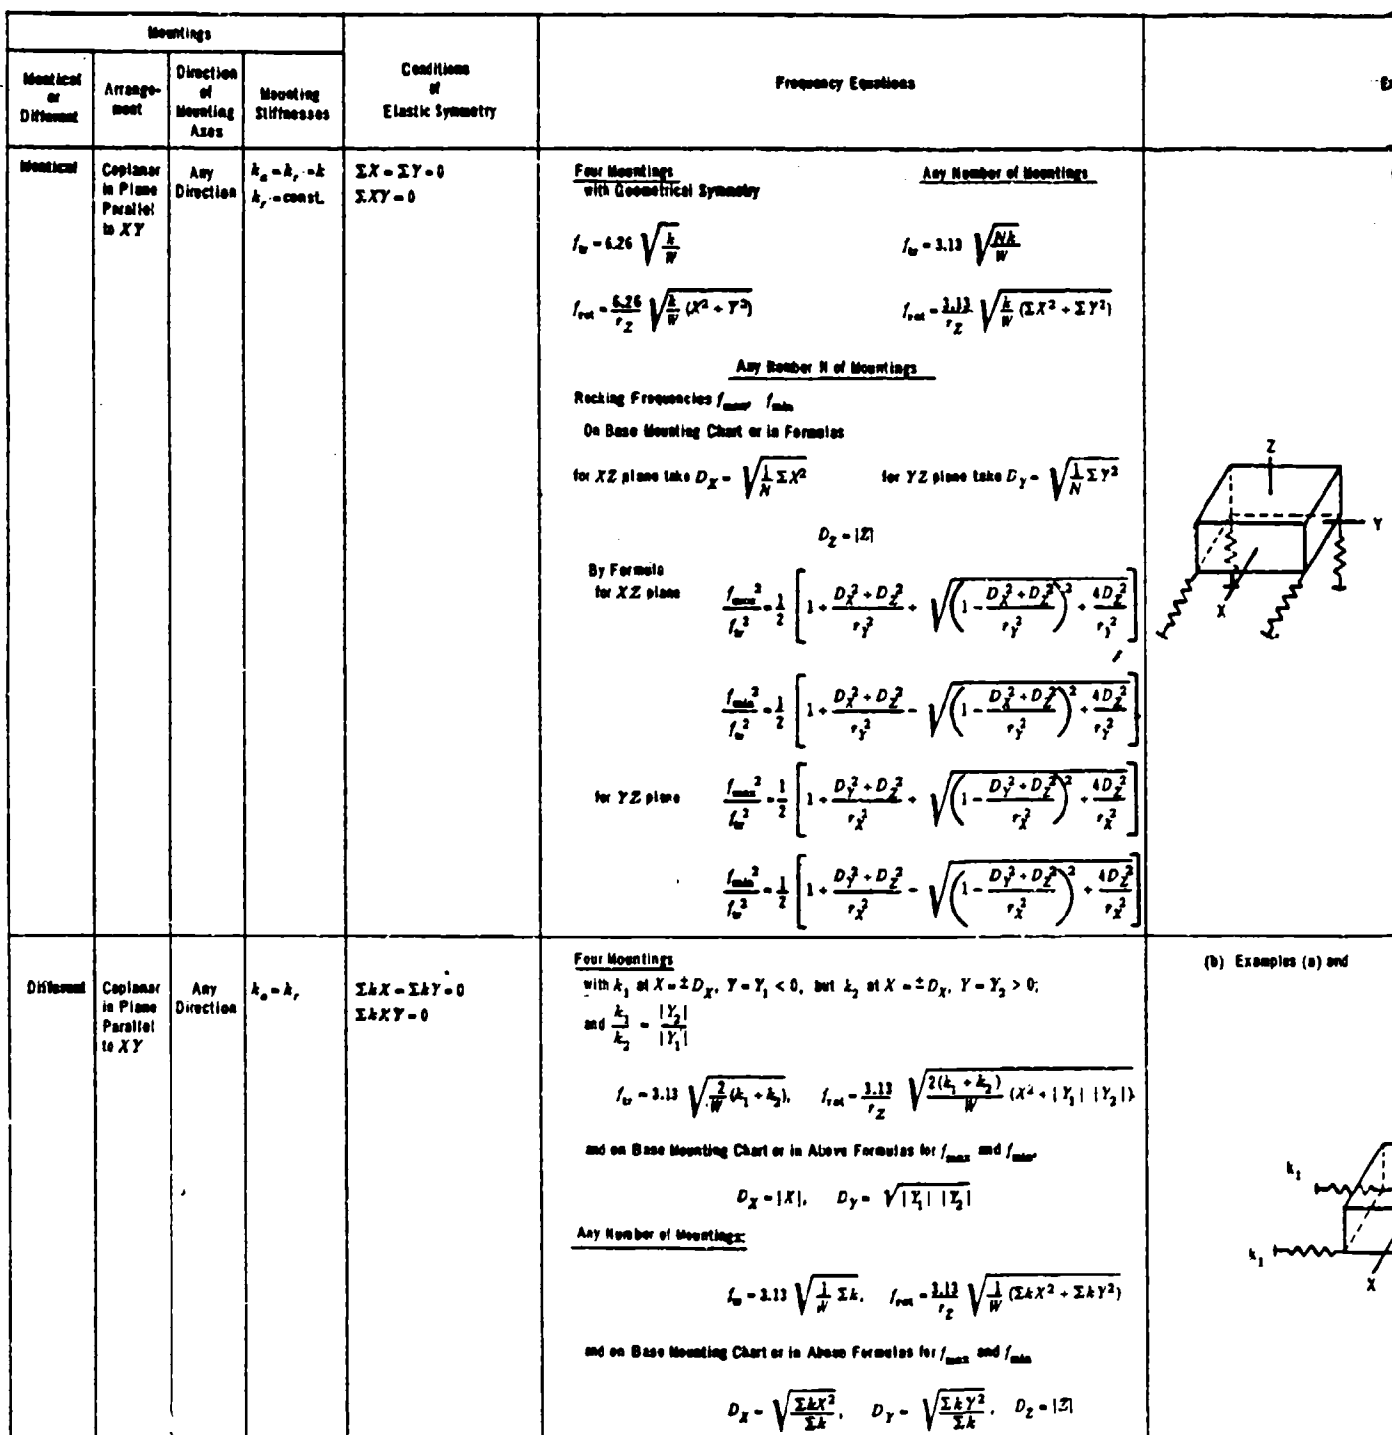 Mountings
Identical or Different
Arrangement
Direction of Mounting Axes
Mounting Stiffnesses
Conditions of Elastic Symmetry
Frequency Equations
Identical
Coplanar in Plane Parallel to XY
Any Direction
k_a = k_r = k
k_r = const.
ΣX = ΣY = 0
ΣXY = 0
Four Mountings
with Geometrical Symmetry
Any Number of Mountings
f_tr = 6.26 √(k/W)
f_tr = 3.13 √(Nk/W)
f_rot = 6.26/r_Z √(k/W (X² + Y²))
f_rot = 3.13/r_Z √(k/W (ΣX² + ΣY²))
Any Number N of Mountings
Rocking Frequencies f_max, f_min
On Base Mounting Chart or in Formulas
for XZ plane take D_X = √(1/N ΣX²)
for YZ plane take D_Y = √(1/N ΣY²)
D_Z = |Z|
By Formula
for XZ plane
f_max²/f_tr² = 1/2 [1 + (D_X² + D_Z²)/r_Y² + √((1 - (D_X² + D_Z²)/r_Y²)² + 4D_Z²/r_Y²)]
f_min²/f_tr² = 1/2 [1 + (D_X² + D_Z²)/r_Y² - √((1 - (D_X² + D_Z²)/r_Y²)² + 4D_Z²/r_Y²)]
for YZ plane
f_max²/f_tr² = 1/2 [1 + (D_Y² + D_Z²)/r_X² + √((1 - (D_Y² + D_Z²)/r_X²)² + 4D_Z²/r_X²)]
f_min²/f_tr² = 1/2 [1 + (D_Y² + D_Z²)/r_X² - √((1 - (D_Y² + D_Z²)/r_X²)² + 4D_Z²/r_X²)]
Z
Y
X
Different
Coplanar in Plane Parallel to XY
Any Direction
k_a = k_r
ΣkX = ΣkY = 0
ΣkXY = 0
Four Mountings
with k_1 at X = ±D_X, Y = Y_1 < 0, but k_2 at X = ±D_X, Y = Y_2 > 0;
and k_1/k_2 = |Y_2|/|Y_1|
f_tr = 3.13 √(2/W (k_1 + k_2)), f_rot = 3.13/r_Z √(2(k_1 + k_2)/W (X² + |Y_1| |Y_2|))
and on Base Mounting Chart or in Above Formulas for f_max and f_min,
D_X = |X|, D_Y = √(|Y_1| |Y_2|)
Any Number of Mountings:
f_tr = 3.13 √(1/W Σk), f_rot = 3.13/r_Z √(1/W (ΣkX² + ΣkY²))
and on Base Mounting Chart or in Above Formulas for f_max and f_min
D_X = √(ΣkX²/Σk), D_Y = √(ΣkY²/Σk), D_Z = |Z|
(b) Examples (a) and
k_1
k_1
X